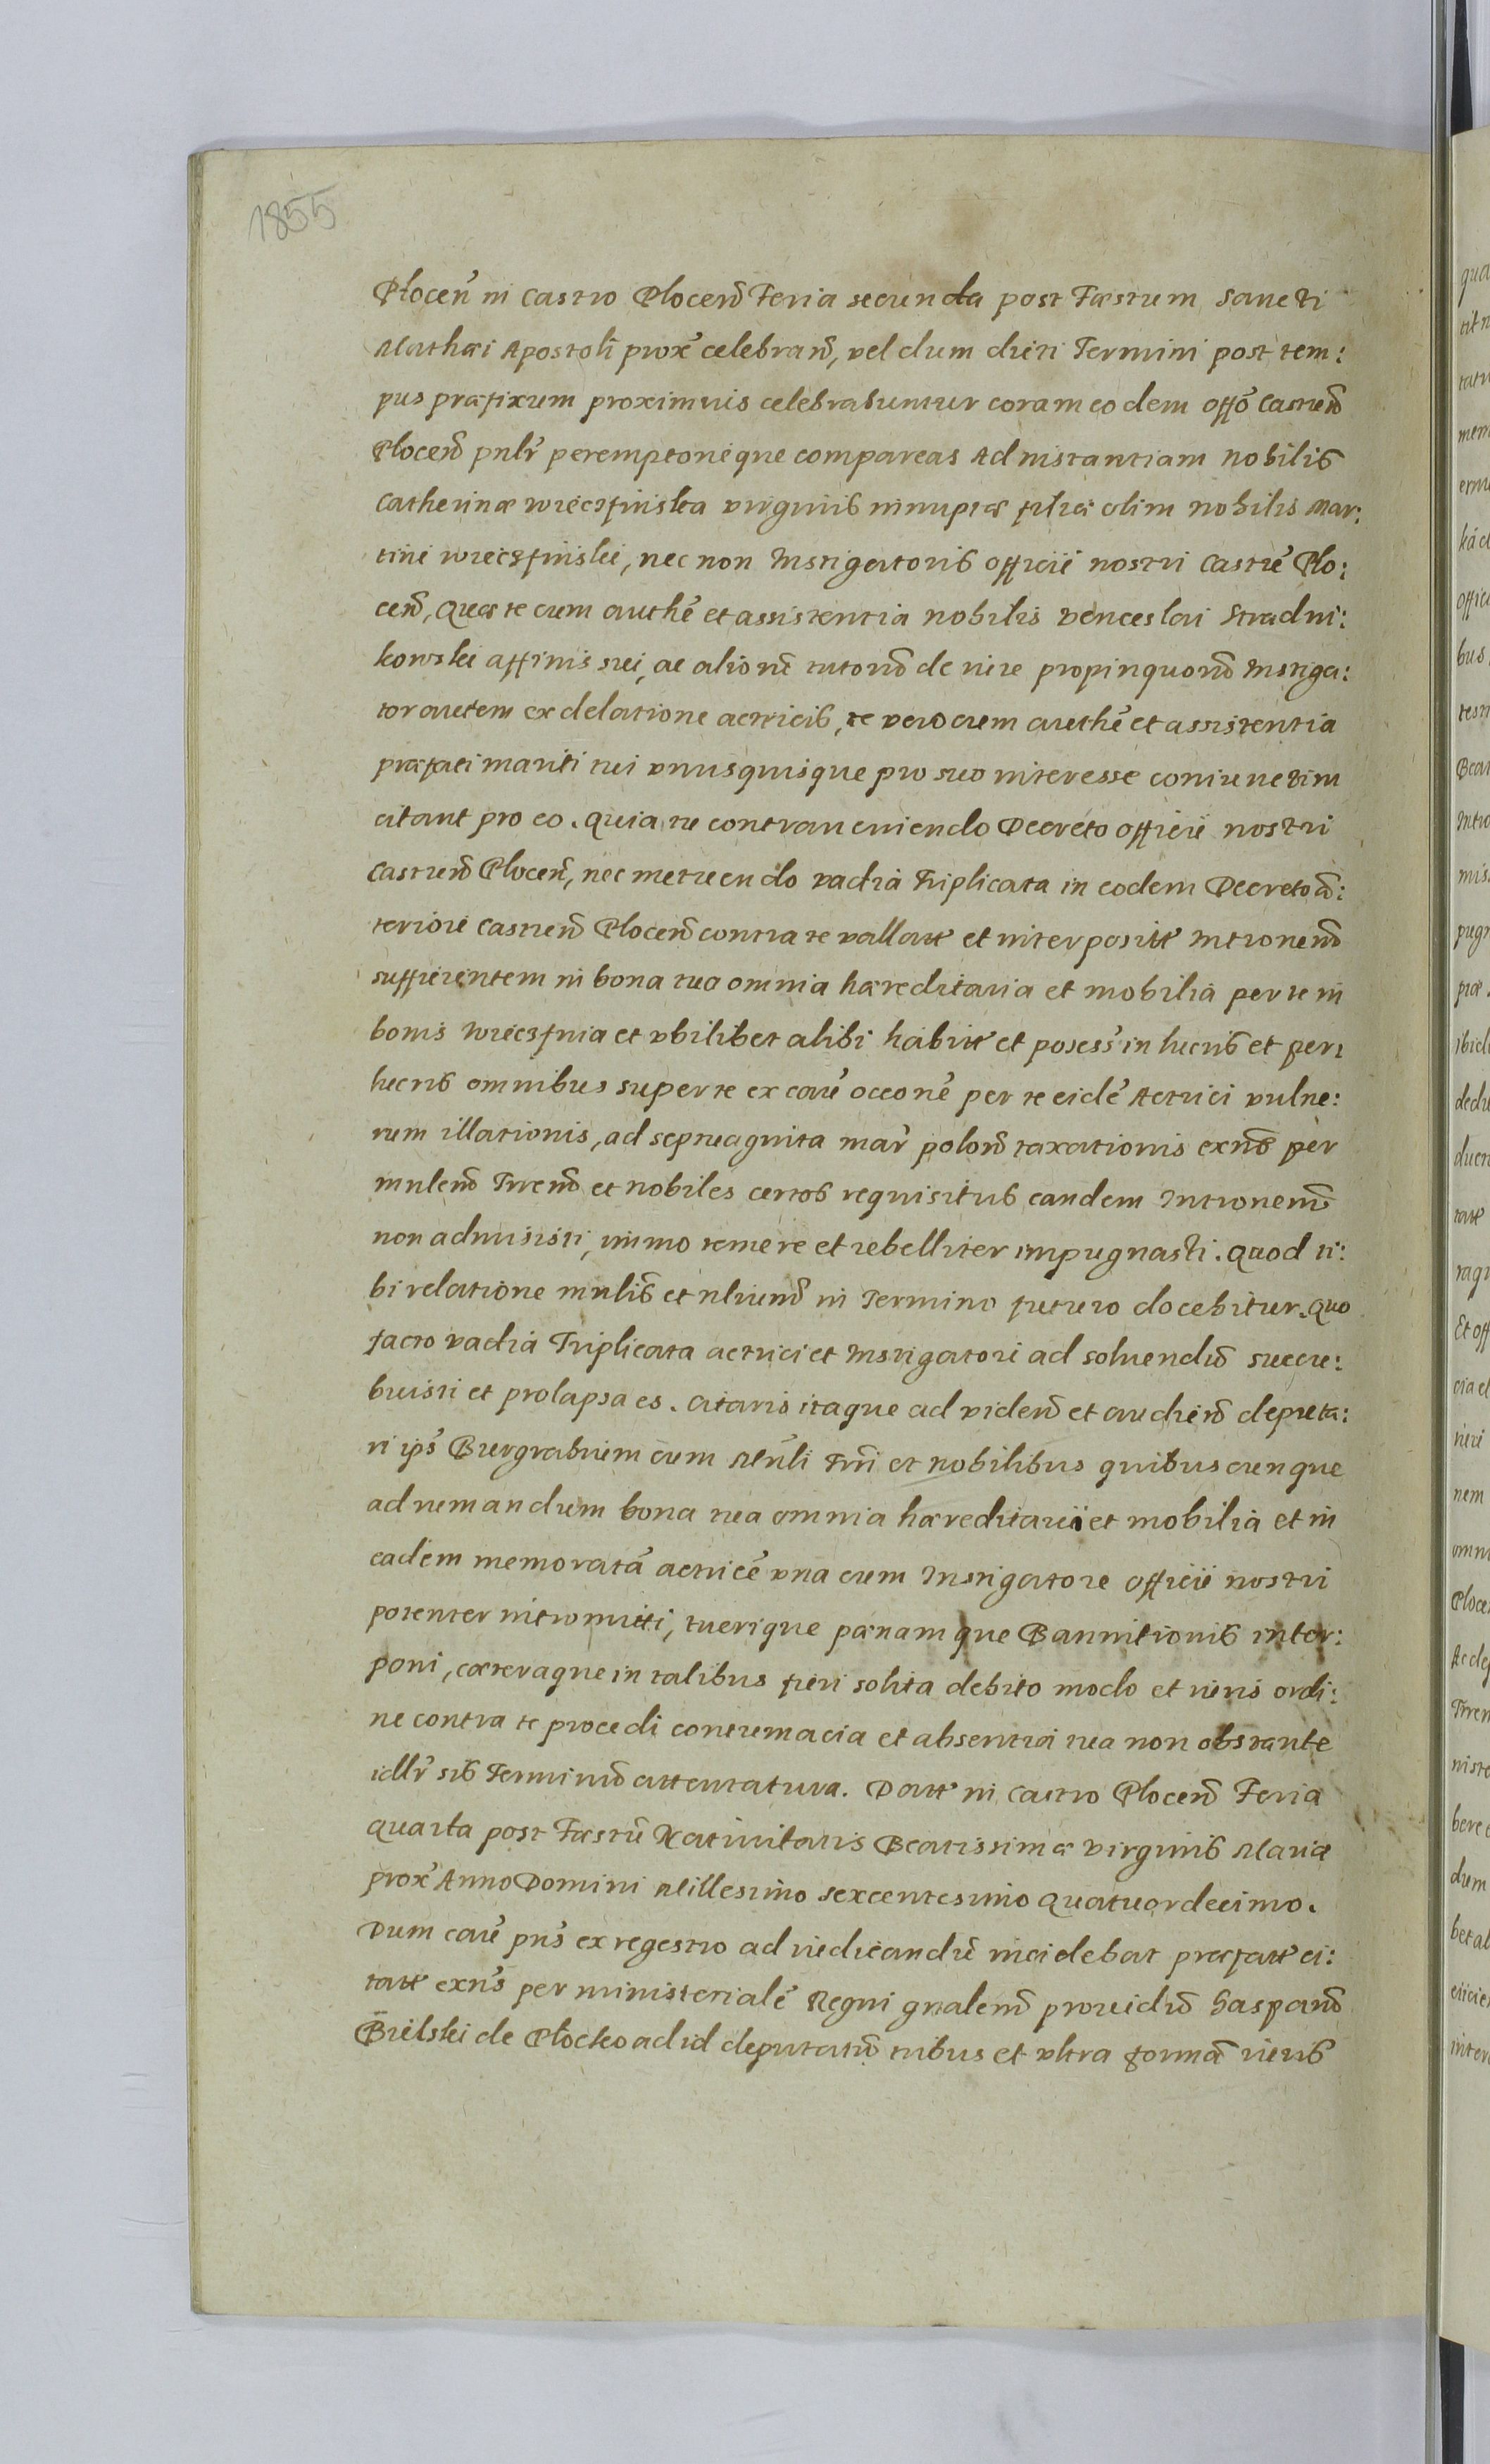 1855
Płocen̄ in Castro Plocen̄ Feria secunda post Fæstum Sancti
Mathæi Apostoli prox̄ celebran̄, vel dum dicti Termini post tem:
pus præfixum proximius celebrabuntur coram eodem offō Castren̄
Plocen̄ pnlr̄ peremptorieque compareas Ad instantiam Nobilis
Catherinæ Wieczfinska virginis innuptæ filiæ olim Nobilis Mar:
tini Wieczfinskii, nec non Instigatoris officii nostri Castrē Plo:
cen̄, Quæ te cum authē et assistentia Nobilis Venceslai Stradni:
kowskii affinis sui, ac aliorū tutorū de iure propinquorū Instiga:
tor autem ex delatione actricis, te vero cum authē et assistentia
præfati mariti tui vnusquisque pro suo interesse coniunctim
citant pro eo. Quia tu contraueniendo Decreto officii nostri
Castren̄ Plocen̄, nec metuendo vadia Triplicata in eodem Decreto ān:
teriori Castren̄ Plocen̄ contra te vallatt et interposit Intronem̄
sufficientem in bona tua omnia hæreditaria et mobilia per te in
bonis Wieczfnia et vbilibet alibi habitt et posess̄ in lucris et per:
lucris omnibus super te ex caū occonē per te eidē Actrici vulne:
rum illationis, ad septuaginta mar̄ polon̄ taxationis exn̄s per
mnlem̄ Trrem̄ et nobiles certos requisitus eandem Intronem̄
non admisisti, immo temere et rebelliter impugnasti. Quod ti:
bi relatione mnlis̄ et nlium̄ in Termino futuro docebitur. Quo
facto vadia Triplicata actrici et Instigatori ad soluendū succu:
buisti et prolapsa es. Citaris itaque ad viden̄ et audien̄ deputa:
ri ips̄ Burgrabium cum Mn̄li Trr̄i et nobilibus quibuscunque
adremandum bona tua omnia hæreditarii et mobilia et in
eadem memoratā actricē vna cum Instigatore officii nostri
potenter intromitti, tuerique pænamque Bannitionis inter:
poni, cæteraque in talibus fieri solita debito modo et iuris ordi:
ne contra te procedi contumacia et absentia tua non obstante
idlr̄ sis Terminū attentatura. Datt in Castro Plocen̄ Feria
quarta post Fæstū Natiuitatis Beatissimæ Virginis Mariæ
prox̄ Anno Domini Millesimo sexcentesimo quatuordecimo.
Dum caū pn̄s ex regestro ad iudicandū incidebat præfatt ci:
tatt exn̄s per ministerialē Regni gnalem̄ prouidū Gasparū
Bielski de Płocko ad id deputatū tribus et vltra formā iuris